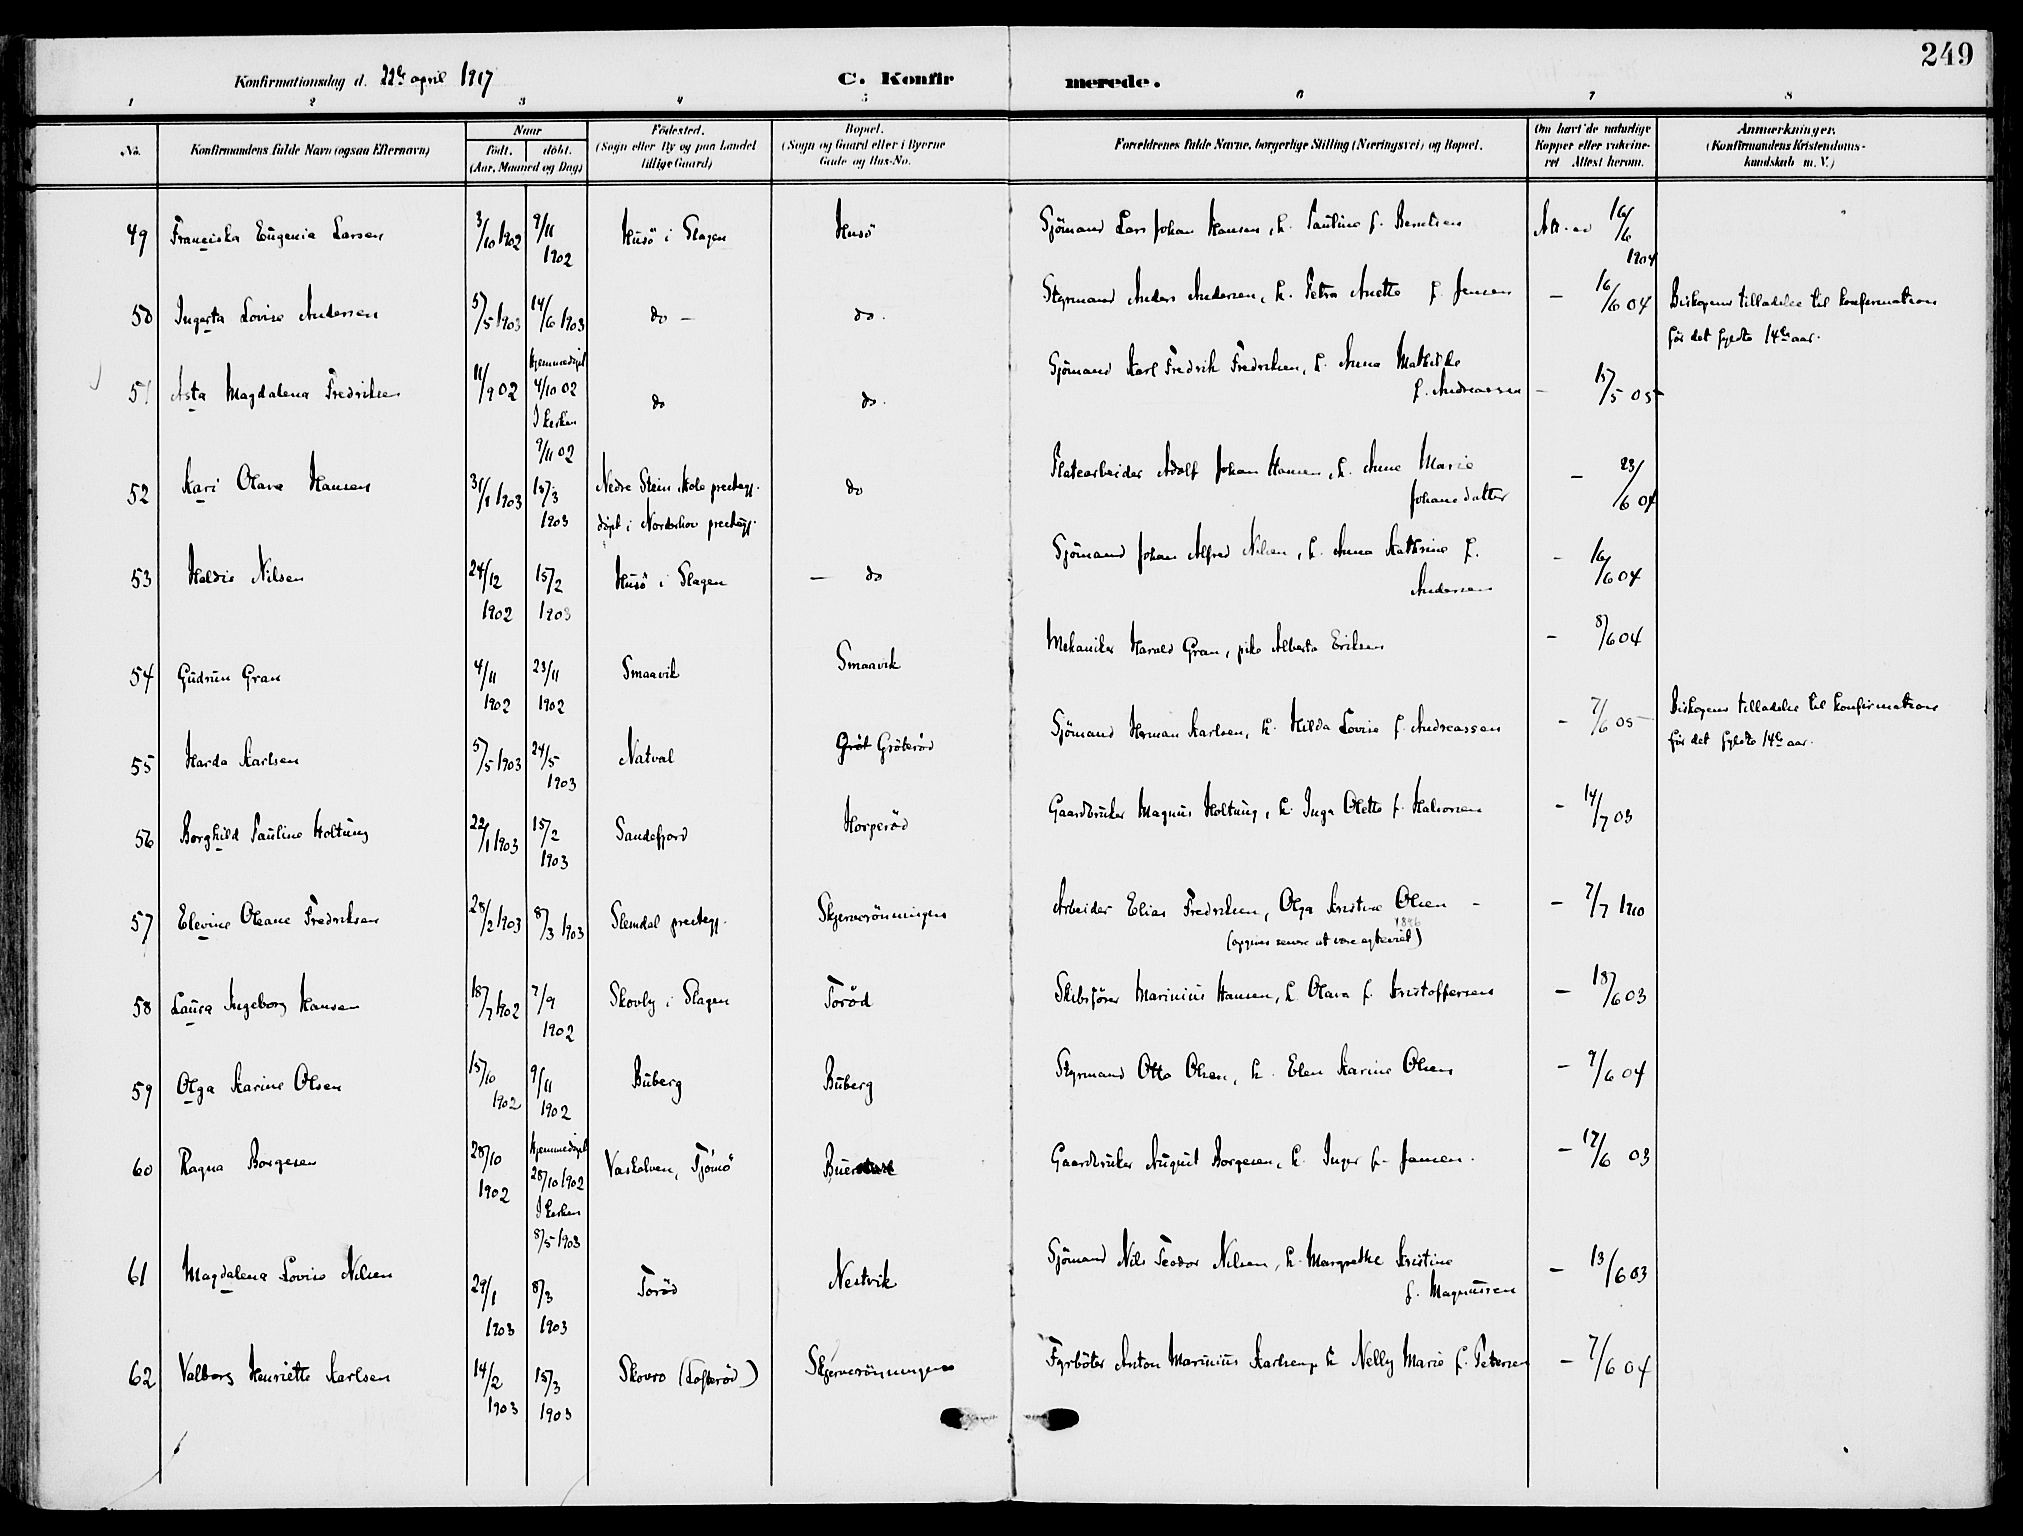 249
Konfirmationsdag d. 22de april 1917 C. Konfirmerede.
1 2 3 4 5 6 7 8
No. Konfirmandens fulde Navn (ogsaa Efternavn) Naar født. døbt. (Aar, Maaned og Dag) Fødested. (Sogn eller By og paa Landet tillige Gaard) Bopæl. (Sogn og Gaard eller i Byerne Gade og Hus-No. Forældrenes fulde Navne, borgerlige Stilling (Næringsvei) og Bopæl. Om havt de naturlige Kopper eller vakcineret Attest herom. Anmærkninger. (Konfirmandens Kristendomskundskab m. V.)
49 Franciska Eugenia Larsen 3/10 1902 9/11 1902 Husö i Slagen Husö Sjömand Lars Johan Hansen, h. Pauline f. Berntsen Att. av 16/6 1904
50 Ingerta Lovise Andersen 5/5 1903 14/6 1903 do - do. Styrmand Anders Andersen, h. Petra Anette f. Jensen - 16/6 04 Biskopens tilladelse til konfirmation
før det fyldte 14de aar.
51 Asta Magdalena Fredriksen 11/9 02 Hjemmedøpt 4/10 02 I kirken 9/11 02 do do. Sjömand Karl Fredrik Fredriksen, h. Anna Mathilde
f. Andreassen - 15/5 05
52 Kari Olava Hansen 31/1 1903 15/3 1903 Nedre Stein, Hole prestegj. do Platearbeider Adolf Johan Hansen, h. Anne Marie - 23/6 04
døpt i Norderhov prestegj. Johansdatter
53 Haldis Nilsen 24/12 1902 15/2 1903 Husö i Slagen - do Sjömand Johan Alfred Nilsen, h. Anna Kathrine f.
Andersen - 16/6 04
54 Gudrun Gran 4/11 1902 23/11 1902 Smaavik Smaavik Mekaniker Harald Gran, pike Alberta Eriksen - 8/6 04
55 Harda Karlsen 5/5 1903 24/5 1903 Natval Gröt Gröterød Sjömand Herman Karlsen, h. Hilda Lovise f. Andreassen - 7/6 05 Biskopens tilladelse til konfirmation
før det fyldte 14de aar.
56 Borghild Pauline Holtung 22/1 1903 15/2 1903 Sandefjord Horperød Gaardbruker Magnus Holtung, h. Inga Olette f. Halvorsen - 14/7 03
57 Elevine Oleane Fredriksen 28/2 1903 8/3 1903 Slemdal prestegj. Skjerverönningen Arbeider Elias Fredriksen, Olga Kristine Olsen - - 7/7 1910
(opgives senere at være egteviet)
58 Laura Ingeborg Hansen 18/7 1902 7/9 1902 Skovly i Slagen Torød Skibsfører Marinius Hansen, h. Olava f. Kristoffersen - 18/6 03
59 Olga Karine Olsen 15/10 1902 9/11 1902 Buberg Buberg Styrmand Otto Olsen, h. Elen Karine Olsen - 9/6 04
60 Ragna Borgesen 28/10 1902 Hjemmedøpt 28/10 1902 I kirken 8/5 1903 Vaskalven, Tjömö Buer Gaardbruker August Borgesen, h. Inger f. Jansen. - 17/6 03
61 Magdalena Lovise Nilsen 29/1 1903 8/3 1903 Torød Nestvik Sjömand Nils Teodor Nilsen, h. Margrethe Kristine
f. Magnussen - 13/6 03
62 Valborg Henriette Karlsen 14/2 1903 15/3 1903 Skovro (Lofterød) Skjerverönningen Fyrböter Anton Marinius Karlsen, h. Nelly Marie f. Petersen - 7/6 04